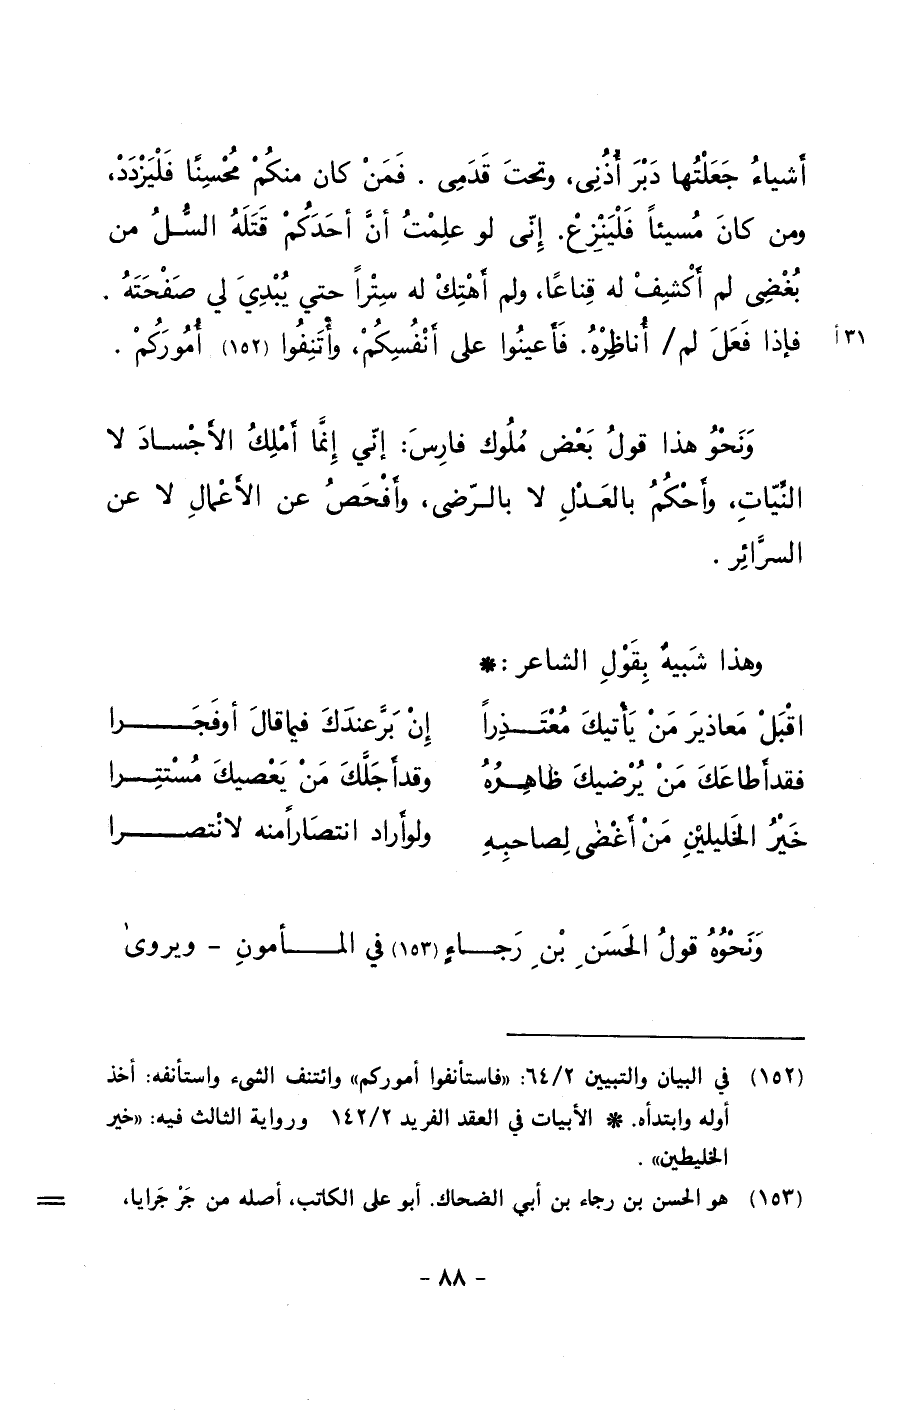 أشياءُ جَعَلْتُها دَبْرَ أُذُنِى، وتحتَ قَدَمِى . فَمَنْ كان منكُمْ مُحْسِنًا فَلْيَزْدَدْ،
ومن كانَ مُسيئاً فَلْيَنْزِعْ. إِنّى لو علِمْتُ أنَّ أحَدَكُمْ قَتَلَهُ السُّلُ من
بُغْضِى لم أَكْشِفْ له قِناعًا، ولم أَهْتِكْ له سِتْراً حتي يُبْدِيَ لي صَفْحَتَهُ .
٣١أ فإذا فَعَلَ لم/ أُناظِرْهُ. فَأَعينُوا على أَنْفُسِكُمْ، وأْتَنِفُوا (١٥٢) أُمُورَكُمْ .
وَنَحْوُ هذا قولُ بَعْض مُلُوك فارِسَ: إنّي إِنَّما أَمْلِكُ الأجْسادَ لا
النّيّاتِ، وأَحْكُمُ بالعَدْلِ لا بالرّضى، وأَفْحَصُ عن الأَعْمالِ لا عن
السرَّائِر .
وهذا شَبيهٌ بِقَوْلِ الشاعر :*
اقْبَلْ مَعاذيرَ مَنْ يَأْتيكَ مُعْتَذِراً إِنْ بَرَّ عندَكَ فيما قالَ أو فَجَرا
فقد أطاعَكَ مَنْ يُرْضيكَ ظاهِرُهُ وقد أجَلَّكَ مَنْ يَعْصيكَ مُسْتَتِرا
خَيْرُ الخَليلَيْنِ مَنْ أَغْضٰى لِصاحبِهِ ولو أَراد انتصَاراً منه لانْتصرا
وَنَحْوُهُ قولُ الحَسَنِ بْنِ رَجاءٍ (١٥٣) في المأمونِ - ويروىٰ
(١٥٢) في البيان والتبيين ٦٤/٢: «فاستأنفوا أموركم» وائتنف الشىء واستأنفه: أخذ
أوله وابتدأه. * الأبيات في العقد الفريد ١٤٢/٢ ورواية الثالث فيه: «خير
الخليطين» .
(١٥٣) هو الحسن بن رجاء بن أبي الضحاك. أبو على الكاتب، أصله من جَرْ جَرايا، =
- ٨٨ -